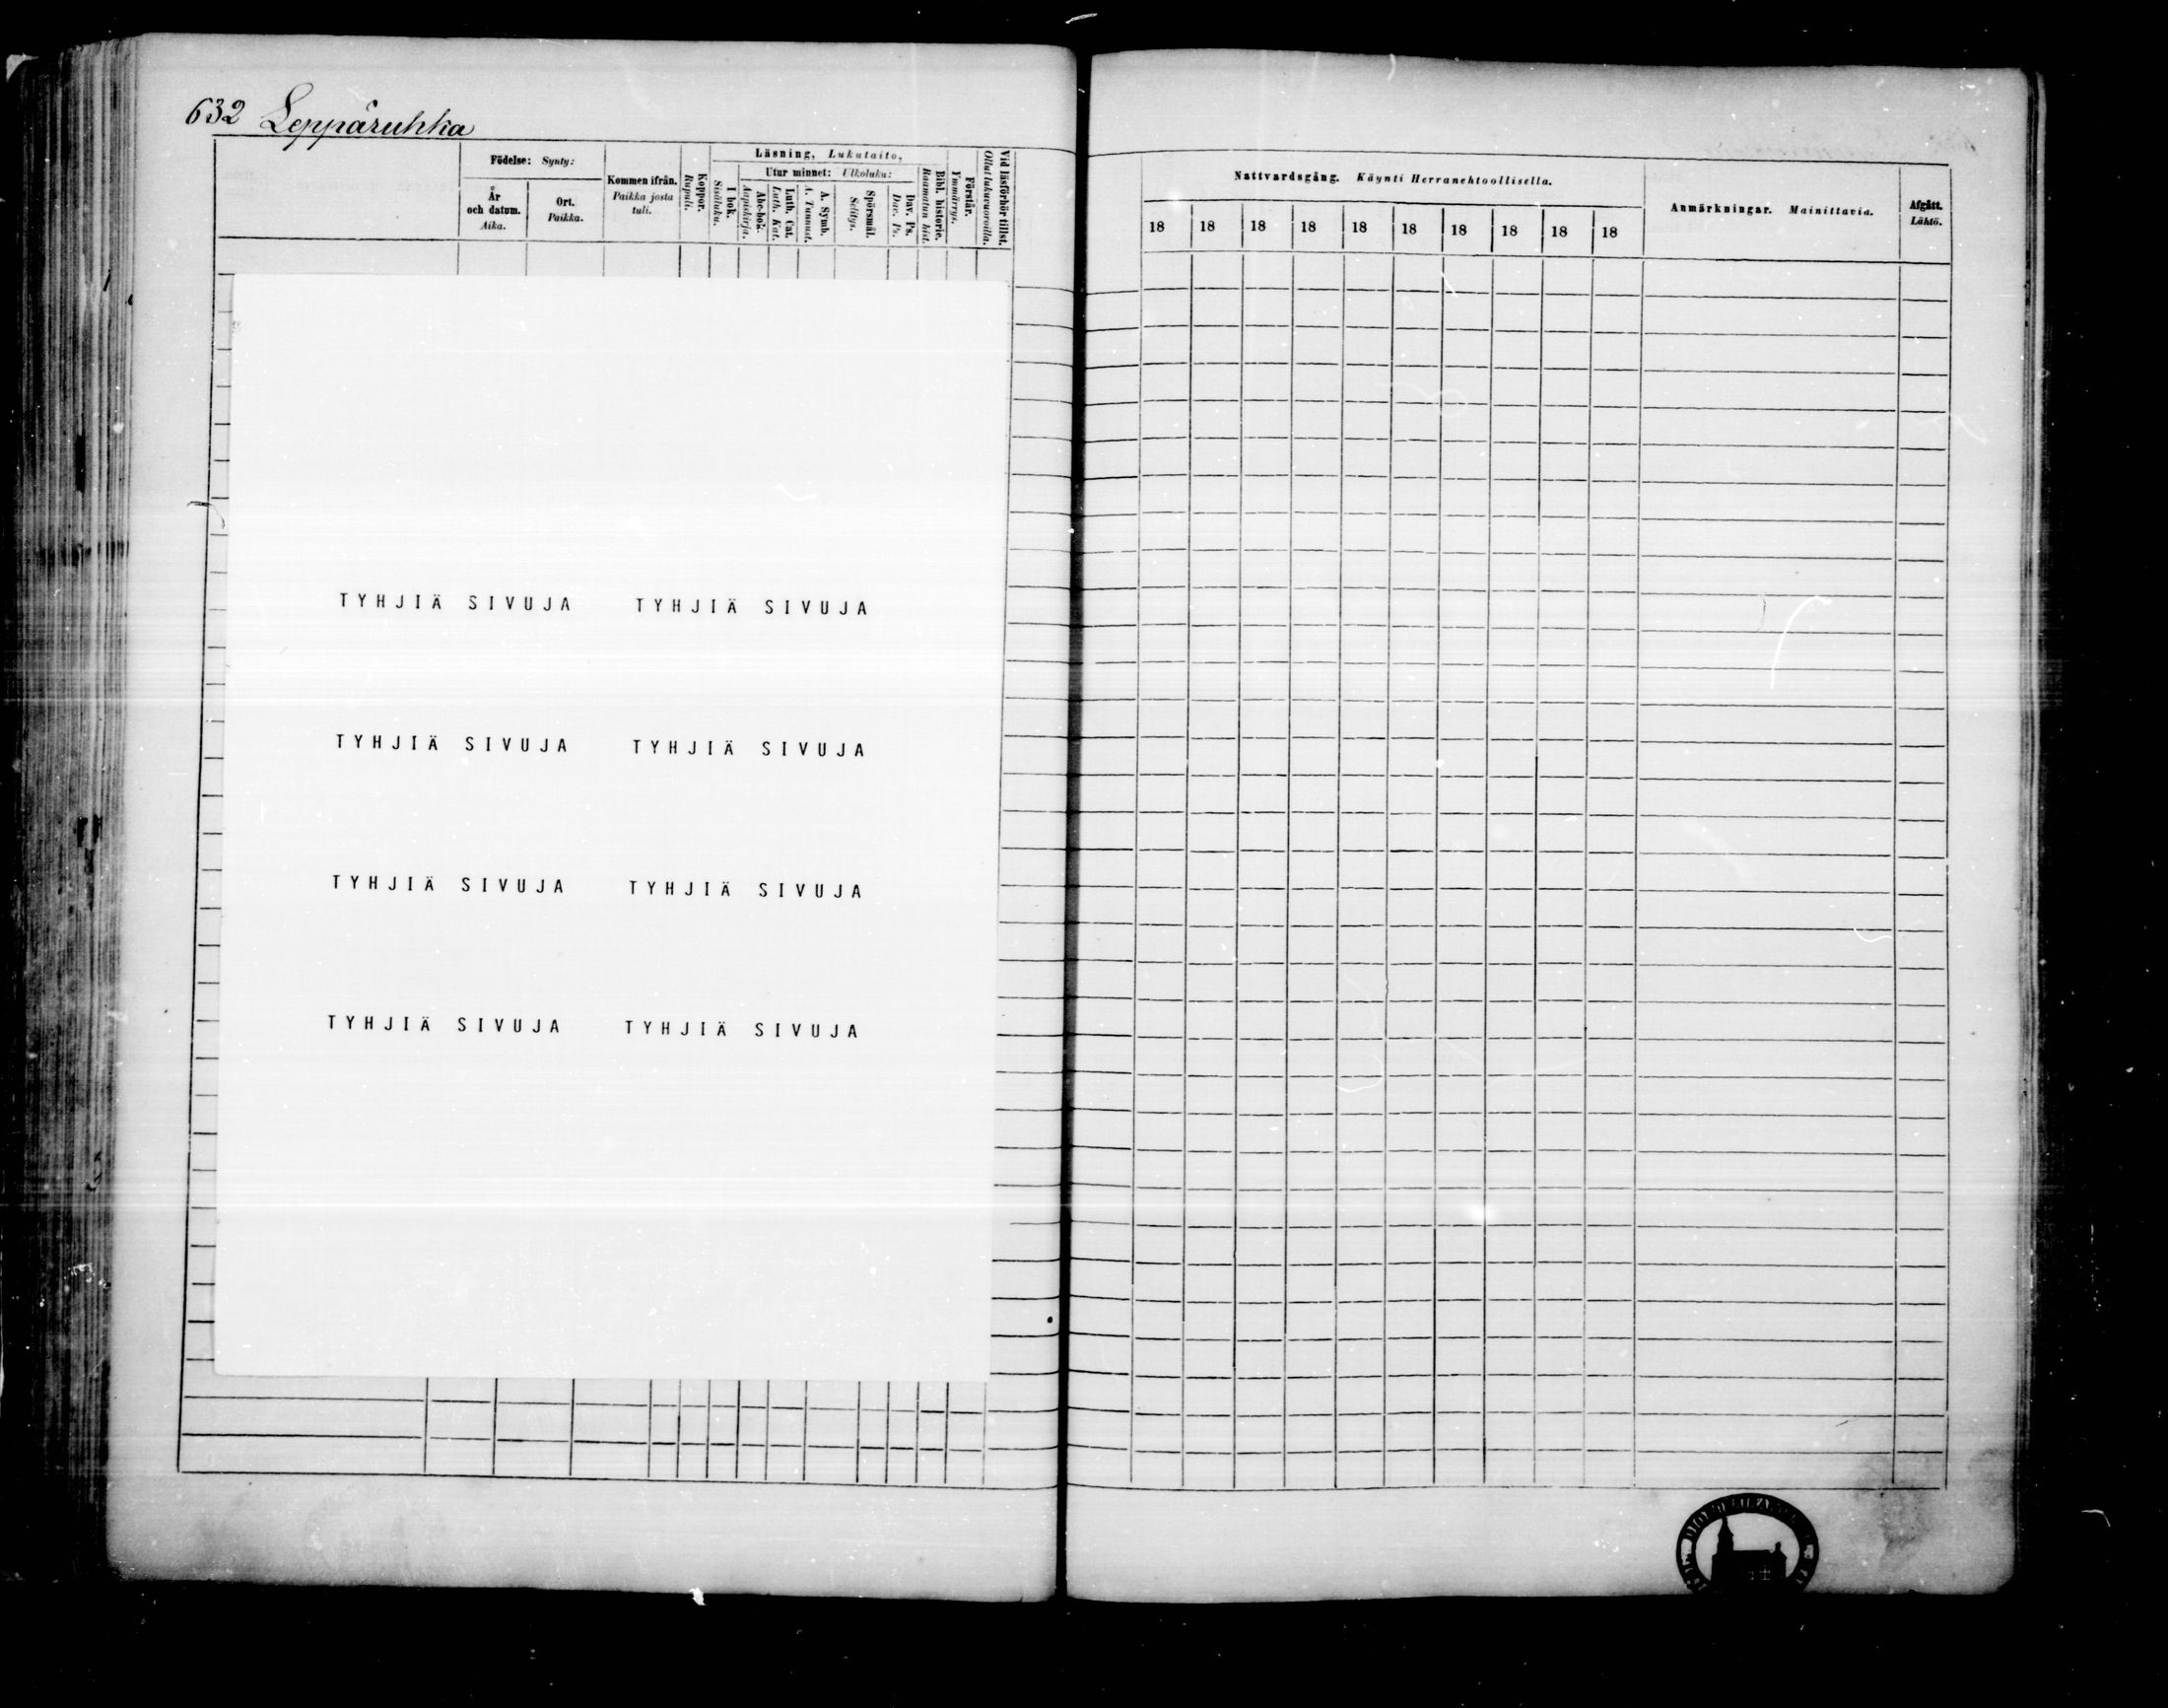 632 Leppäruhka
Födelse: Synty:
År och datum. Aika.
Ort. Paikka.
Kommen ifrån. Paikka josta tuli.
Koppor. Rupuli.
Läsning, Lukutaito,
I bok. Sisäluku.
Utur minnet: Ulkoluku:
Abc-bok. Aapiskirja.
Luth. Cat. Luth. Kat.
A. Symb. A. Tunnust.
Spörsmål. Selitys.
Dav. Ps. Dav. Ps.
Bibl. historie. Raamatun hist.
Förstår. Ymmärrys.
Vid läsförhör tillst. Ollut lukuvuoroilla.
TYHJIÄ SIVUJA TYHJIÄ SIVUJA
TYHJIÄ SIVUJA TYHJIÄ SIVUJA
TYHJIÄ SIVUJA TYHJIÄ SIVUJA
TYHJIÄ SIVUJA TYHJIÄ SIVUJA
Nattvardsgång. Käynti Herranehtoollisella.
18 18 18 18 18 18 18 18 18 18
Anmärkningar. Mainittavia.
Afgått. Lähtö.